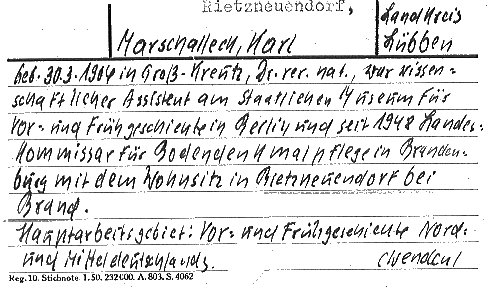 Rietzneuendorf,
Landkreis
Lübben
Marschalleck, Karl
geb. 30.3.1904 in Groß-Kreutz, Dr. rer. nat., war wissen=
schaftlicher Assistent am Staatlichen Museum für
Vor- und Frühgeschichte in Berlin und seit 1948 Landes-
kommissar für Bodendenkmalpflege in Branden-
burg mit dem Wohnsitz in Rietzneuendorf bei
Brand.
Hauptarbeitsgebiet: Vor- und Frühgeschichte Nord-
und Mitteldeutschlands.
Reg. 10. Stichnote 1. 50. 232000. A. 803. S. 4062